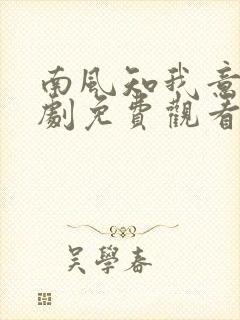 南風知我意
劇免費觀看
吳學春